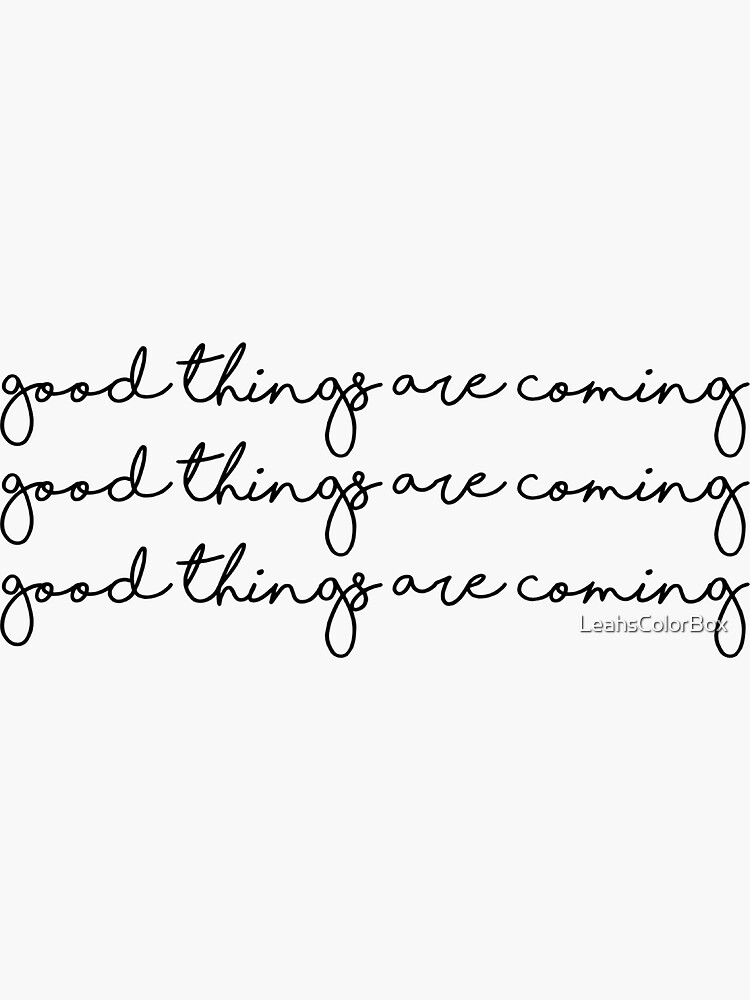 good things are coming
good things are coming
good things are coming
LeahsColorBox